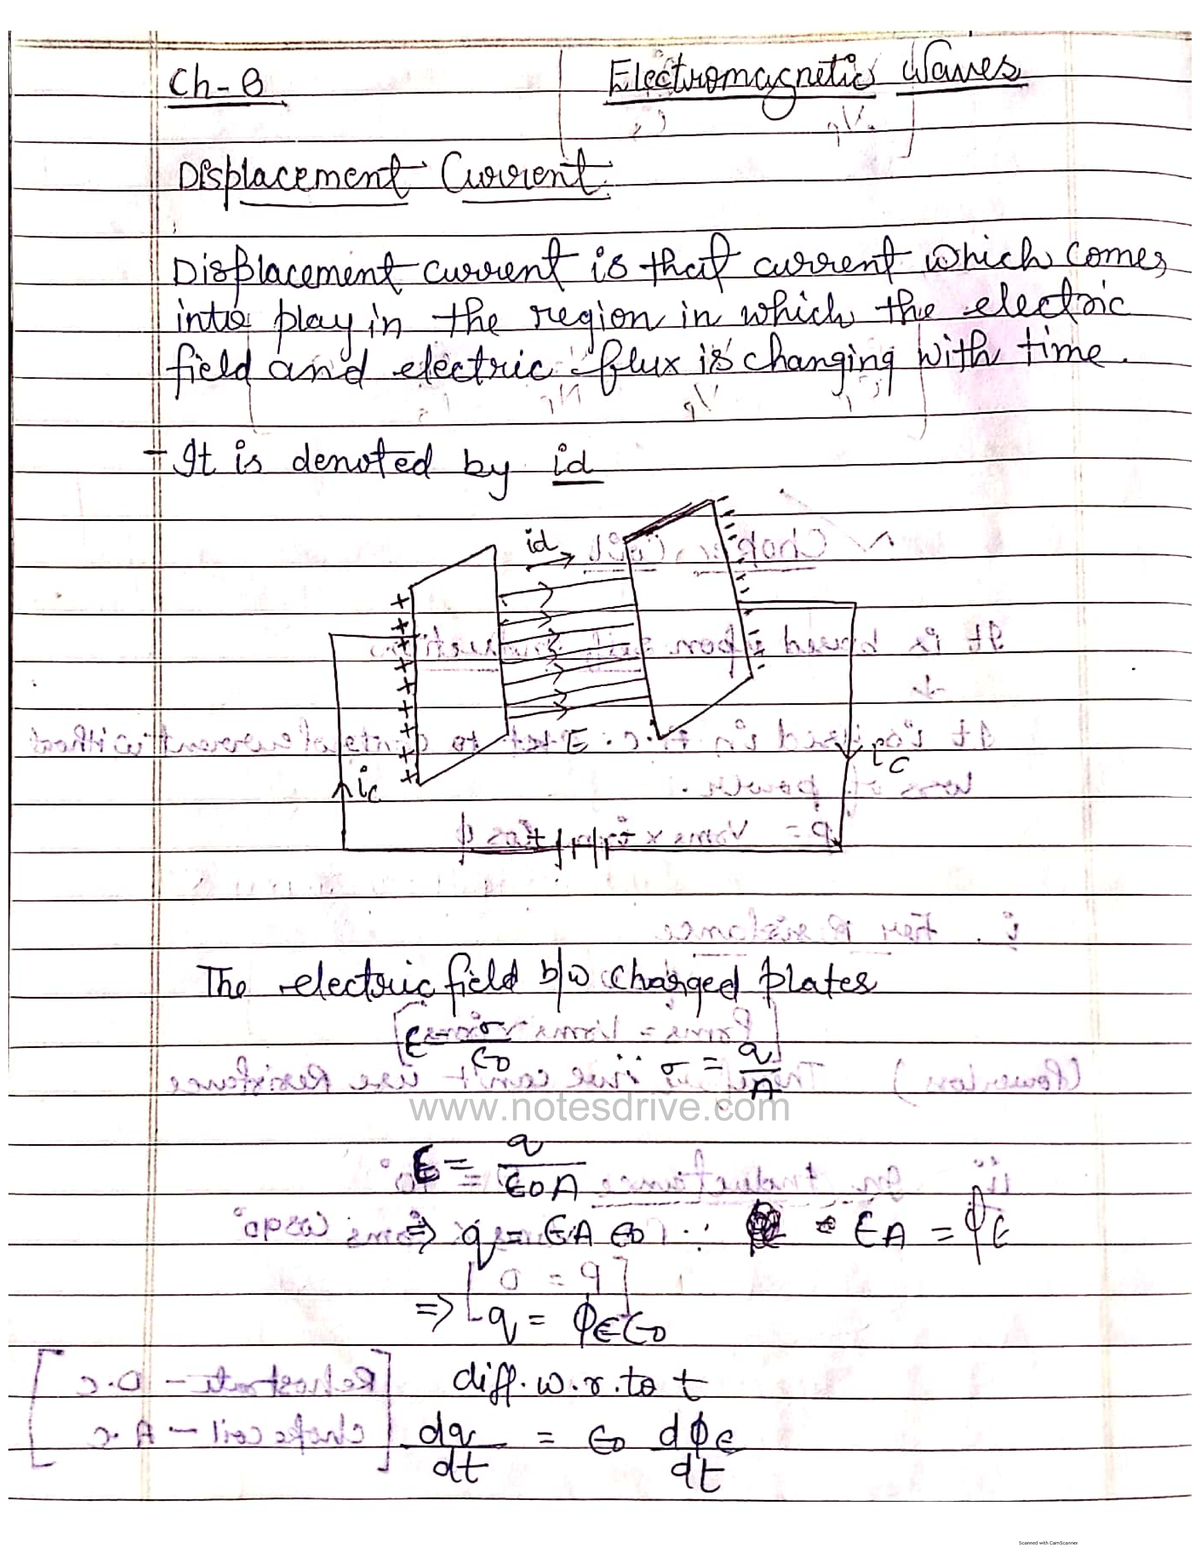 Ch-8
Electromagnetic Waves
Displacement Current
Displacement current is that current which comes
into play in the region in which the electric
field and electric flux is changing with time.
- It is denoted by id
id
+
+
+
+
+
+
+
+
+
E
ic
ic
The electric field b/w charged plates
E = σ/ϵ0 ∵ σ = q/A
www.notesdrive.com
E = q/ϵ0A
⇒ q = EA ϵ0 ∵ EA = ϕE
⇒ q = ϕE ϵ0
diff. w.r. to t
dq/dt = ϵ0 dϕE/dt
Scanned with CamScanner